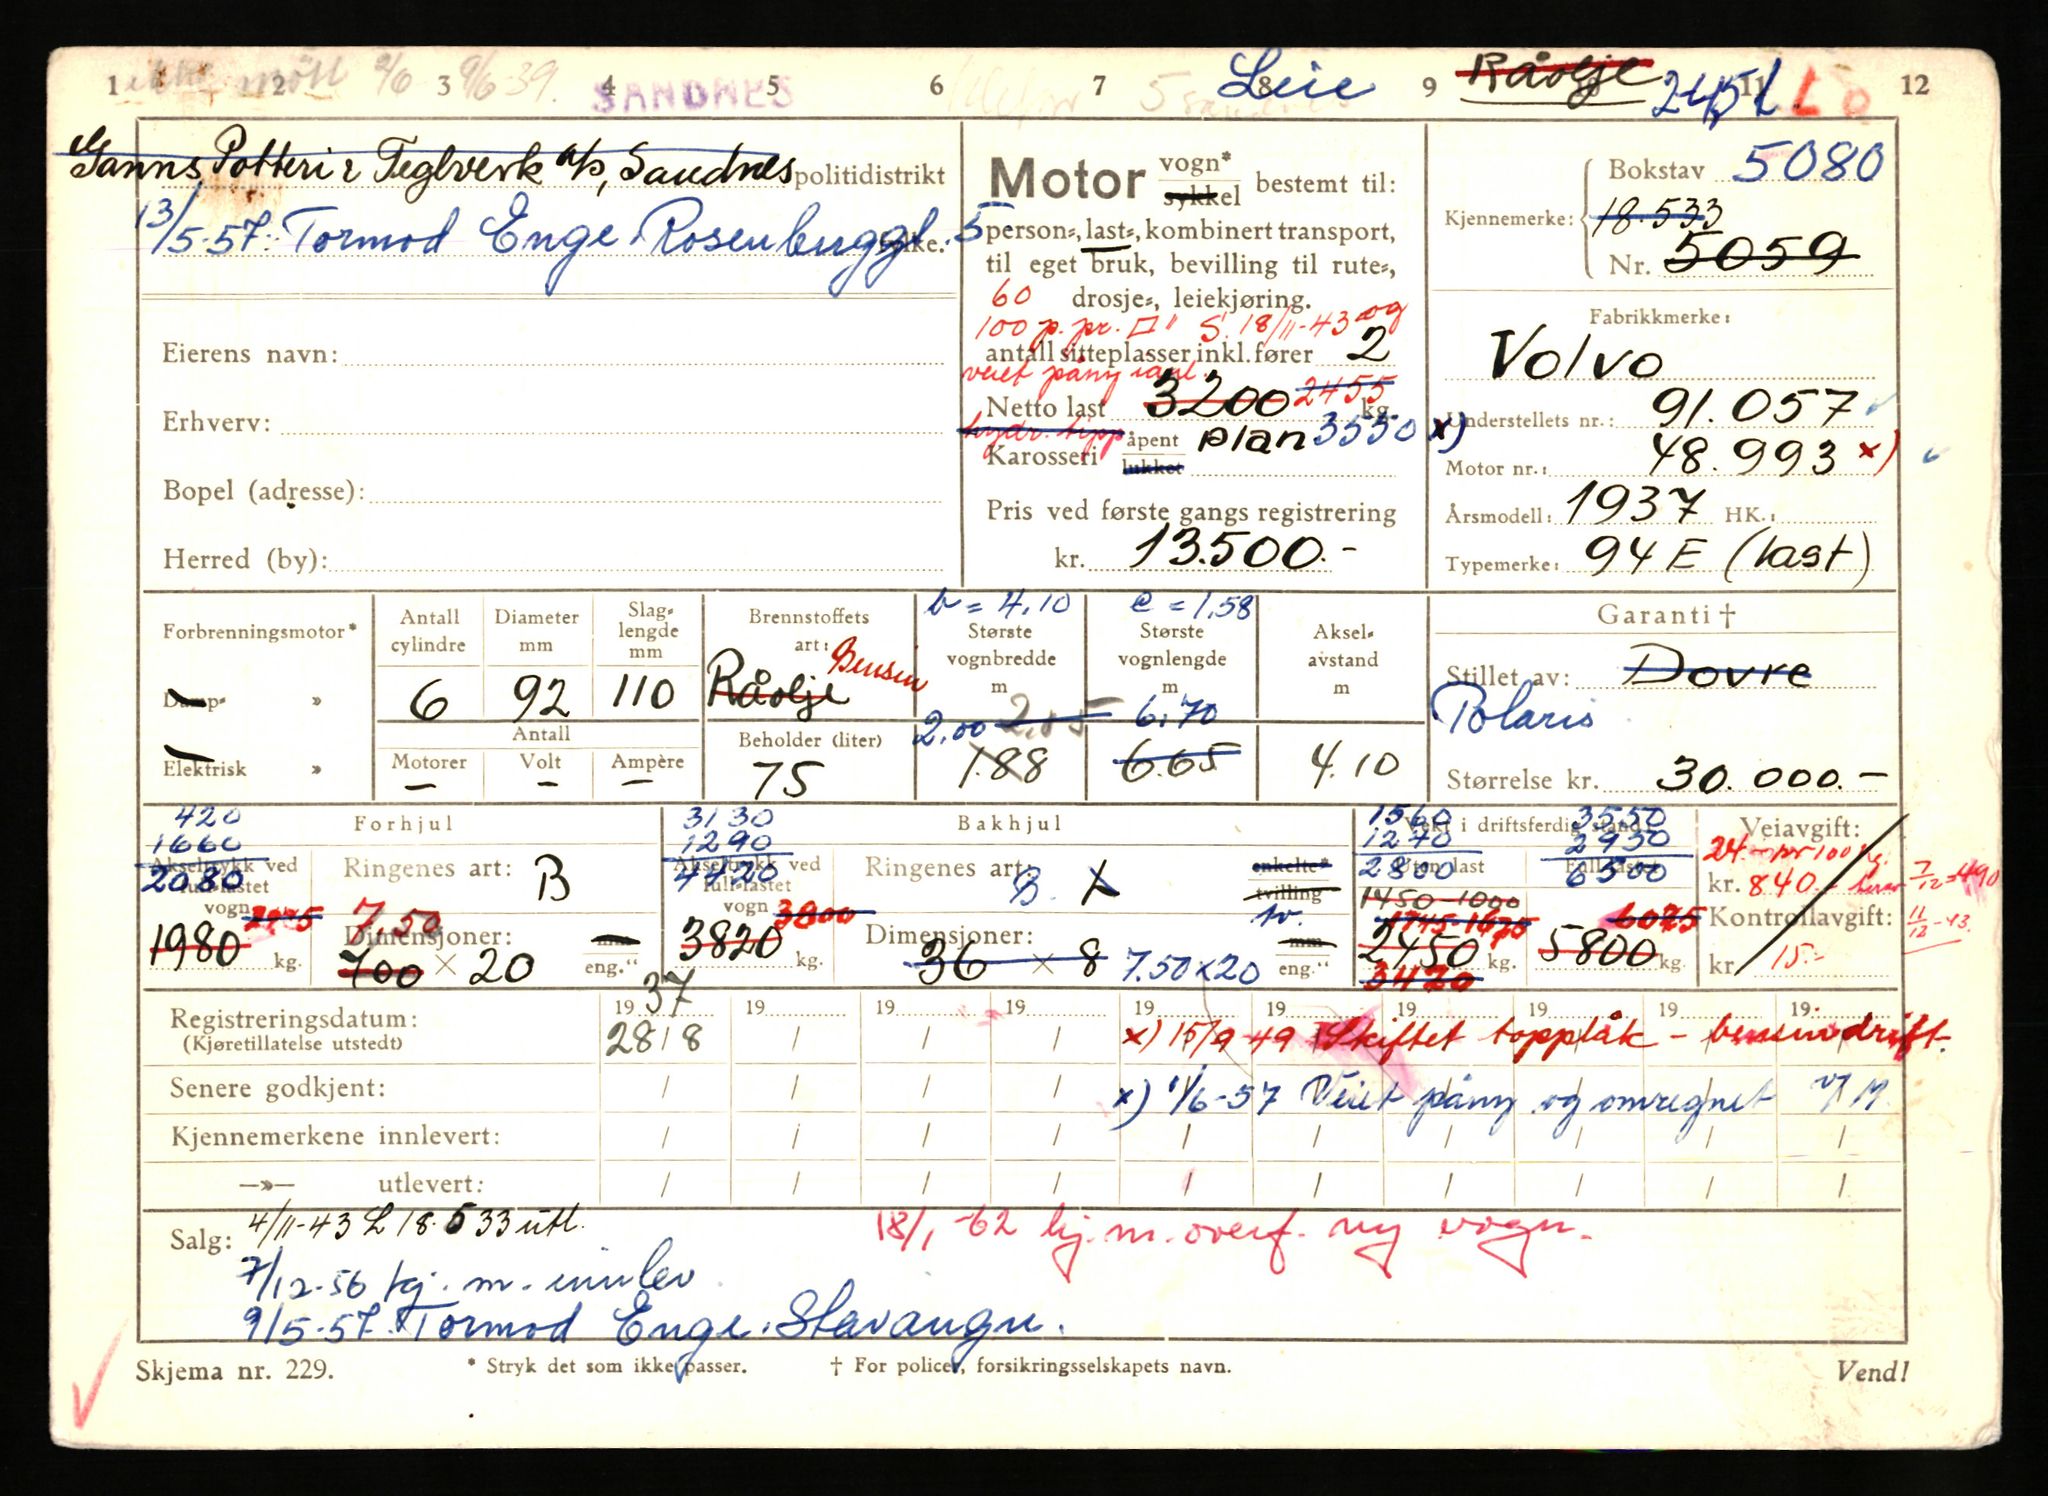 1 2 3 4 5 6 7 8 9 10 11 12
9/6-39. SANDNES Leie Råolje
Ganns Potteri & Teglverk a/s, Sandnes politidistrikt
13/5-57. Tormod Enge. Rosenberggt. 5
Eierens navn:
Erhverv:
Bopel (adresse):
Herred (by):
Motor vogn* sykkel bestemt til:
person-, last-, kombinert transport,
til eget bruk, bevilling til rute-,
drosje-, leiekjøring.
60
100 p. pr. □" S. 18/11-43 og
antall sitteplasser inkl. fører 2
veiet påny
Netto last 3200 2455 kg.
hydr. tipp
Karosseri åpent lukket plan 3550 x)
Pris ved første gangs registrering
kr. 13.500.-
Kjennemerke: Bokstav 5080
18.533
Nr. 5059
Fabrikkmerke:
Volvo
Understellets nr.: 91.057
Motor nr.: 48.993 x)
Årsmodell: 1937 HK.:
Typemerke: 94 E (last)
Forbrenningsmotor*
Damp- »
Elektrisk »
Antall cylindre 6
Diameter mm 92
Slaglengde mm 110
Antall
Motorer - Volt - Ampère -
Brennstoffets art: Råolje Bensin
Beholder (liter) 75
b = 4.10
Største vognbredde m
2.00 2.05
1.88
c = 1.58
Største vognlengde m
6.70
6.65
Akselavstand m
4.10
Garanti †
Stillet av: Dovre
Polaris
Størrelse kr. 30.000.-
Forhjul
420
1660
2080
Akseltrykk ved full-lastet vogn
1980 kg.
Ringenes art: B
7.50
Dimensjoner:
700 × 20 mm eng."
Bakhjul
3130
1290
4420
Akseltrykk ved full-lastet vogn
3800
3820 kg.
Ringenes art: B L enkelte* tvilling tv.
Dimensjoner:
36 × 8 7.50 x 20 mm eng."
Vekt i driftsferdig stand:
1560
1270
Uten last
2800
1450-1000
1745-1675
2450 kg.
3420
3550
2950
Full-lastet
6500
6025
5800 kg.
Veiavgift:
24.- pr 100 kg.
kr. 840.- 7/12 = 490
Kontrollavgift: 11/12-43.
kr. 15.-
19 37 19 19 19 19 19 19 19 19 19
Registreringsdatum: 28/8
(Kjøretillatelse utstedt)
x) 15/9-49 Skiftet topplåk - bensindrift.
Senere godkjent:
x) 1/6-57 Veiet påny og omregnet
Kjennemerkene innlevert:
—»— utlevert:
Salg: 4/11-43 L 18.533 utl.
18/1-62 kj. m. overf. ny vogn.
7/12-56 kj. m. innlev
9/5-57. Tormod Enge. Stavanger.
Skjema nr. 229.
* Stryk det som ikke passer.
† For policer, forsikringsselskapets navn.
Vend!